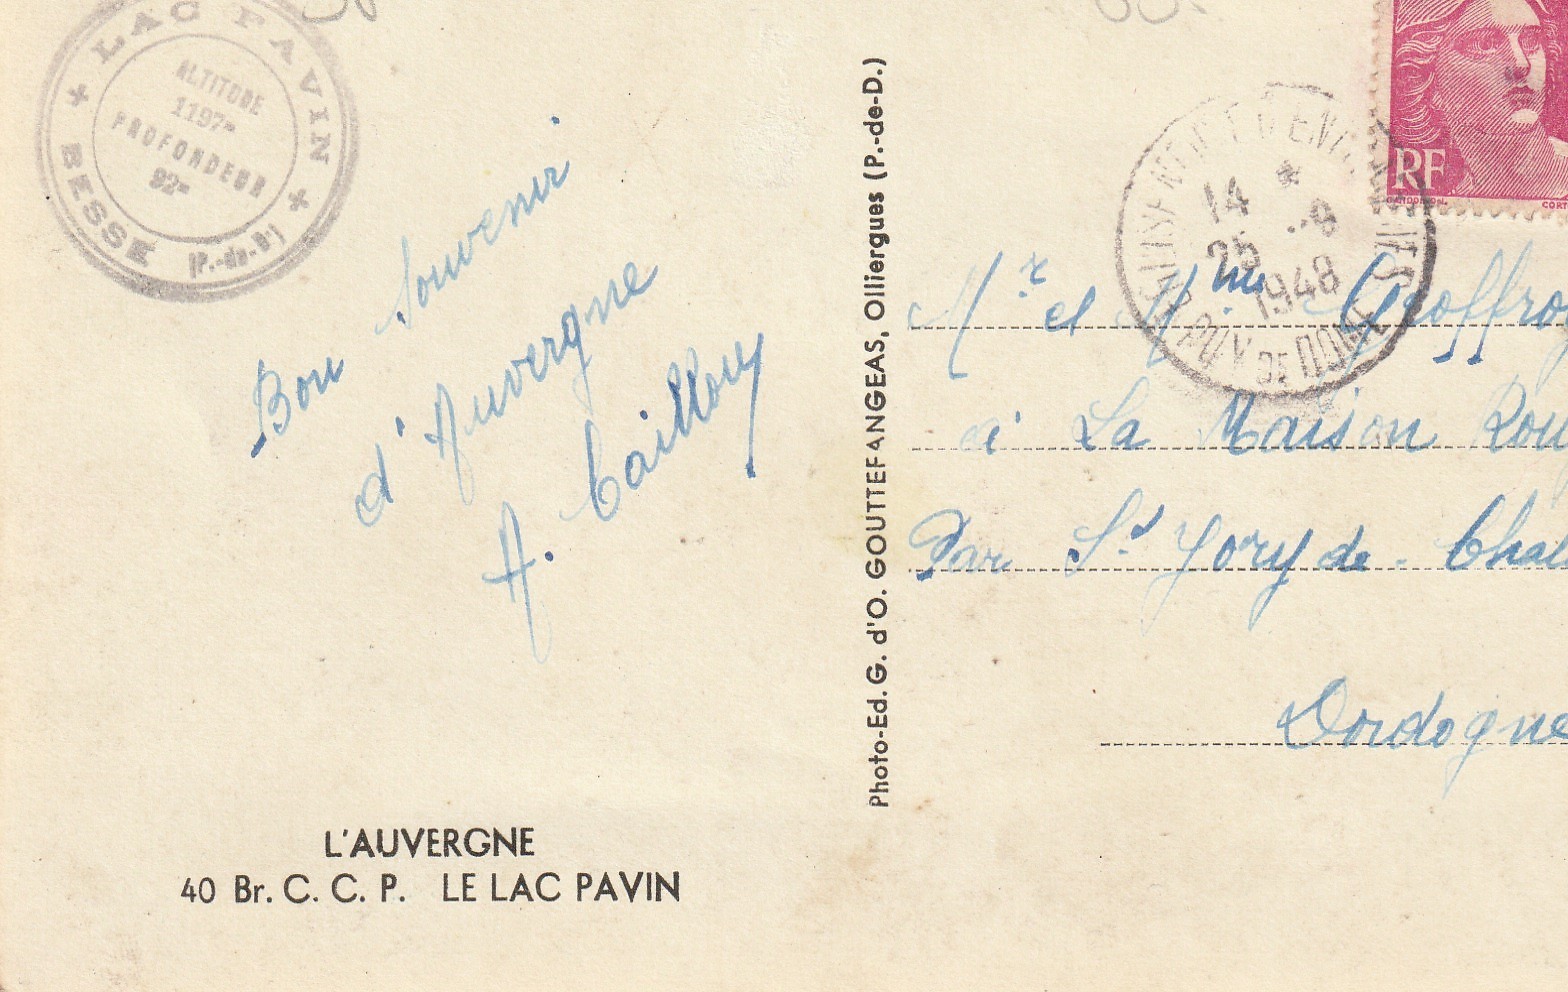 LAC PAVIN
ALTITUDE
1197m
PROFONDEUR
92m
BESSE
(P.-de-D)
Bon Souvenir
d'Auvergne
A. Caillouy
L'AUVERGNE
40 Br. C. C. P. LE LAC PAVIN
Photo-Ed. G. d'O. GOUTTEFANGEAS, Olliergues (P.-de-D.)
RF
14 *
25 -8
1948
PUY DE DOME
Mr et Mme Geoffroy
à La Maison Rou
Par St Yory de - Chal
Dordogne